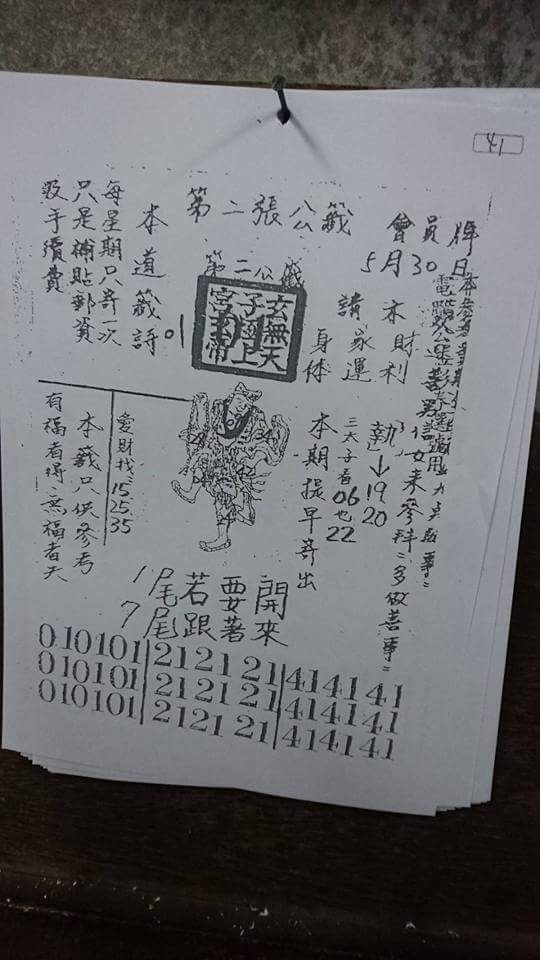 41
會員牌
5月30日
第二張公籤
第二公籤
玄無天
子國上
宮玉帝
本財利
請家運
身体
本道籤詩
01
每星期只寄一次
只是補貼郵資
及手續費
執→19
20
三太子看06也22
本期提早寄出
來參拜多做善事
愛財找:15.25.35
本籤只供參考
有福者得:無福者失
開來
要著
若跟
1尾
7尾
010101 212121 414141
010101 212121 414141
010101 212121 414141